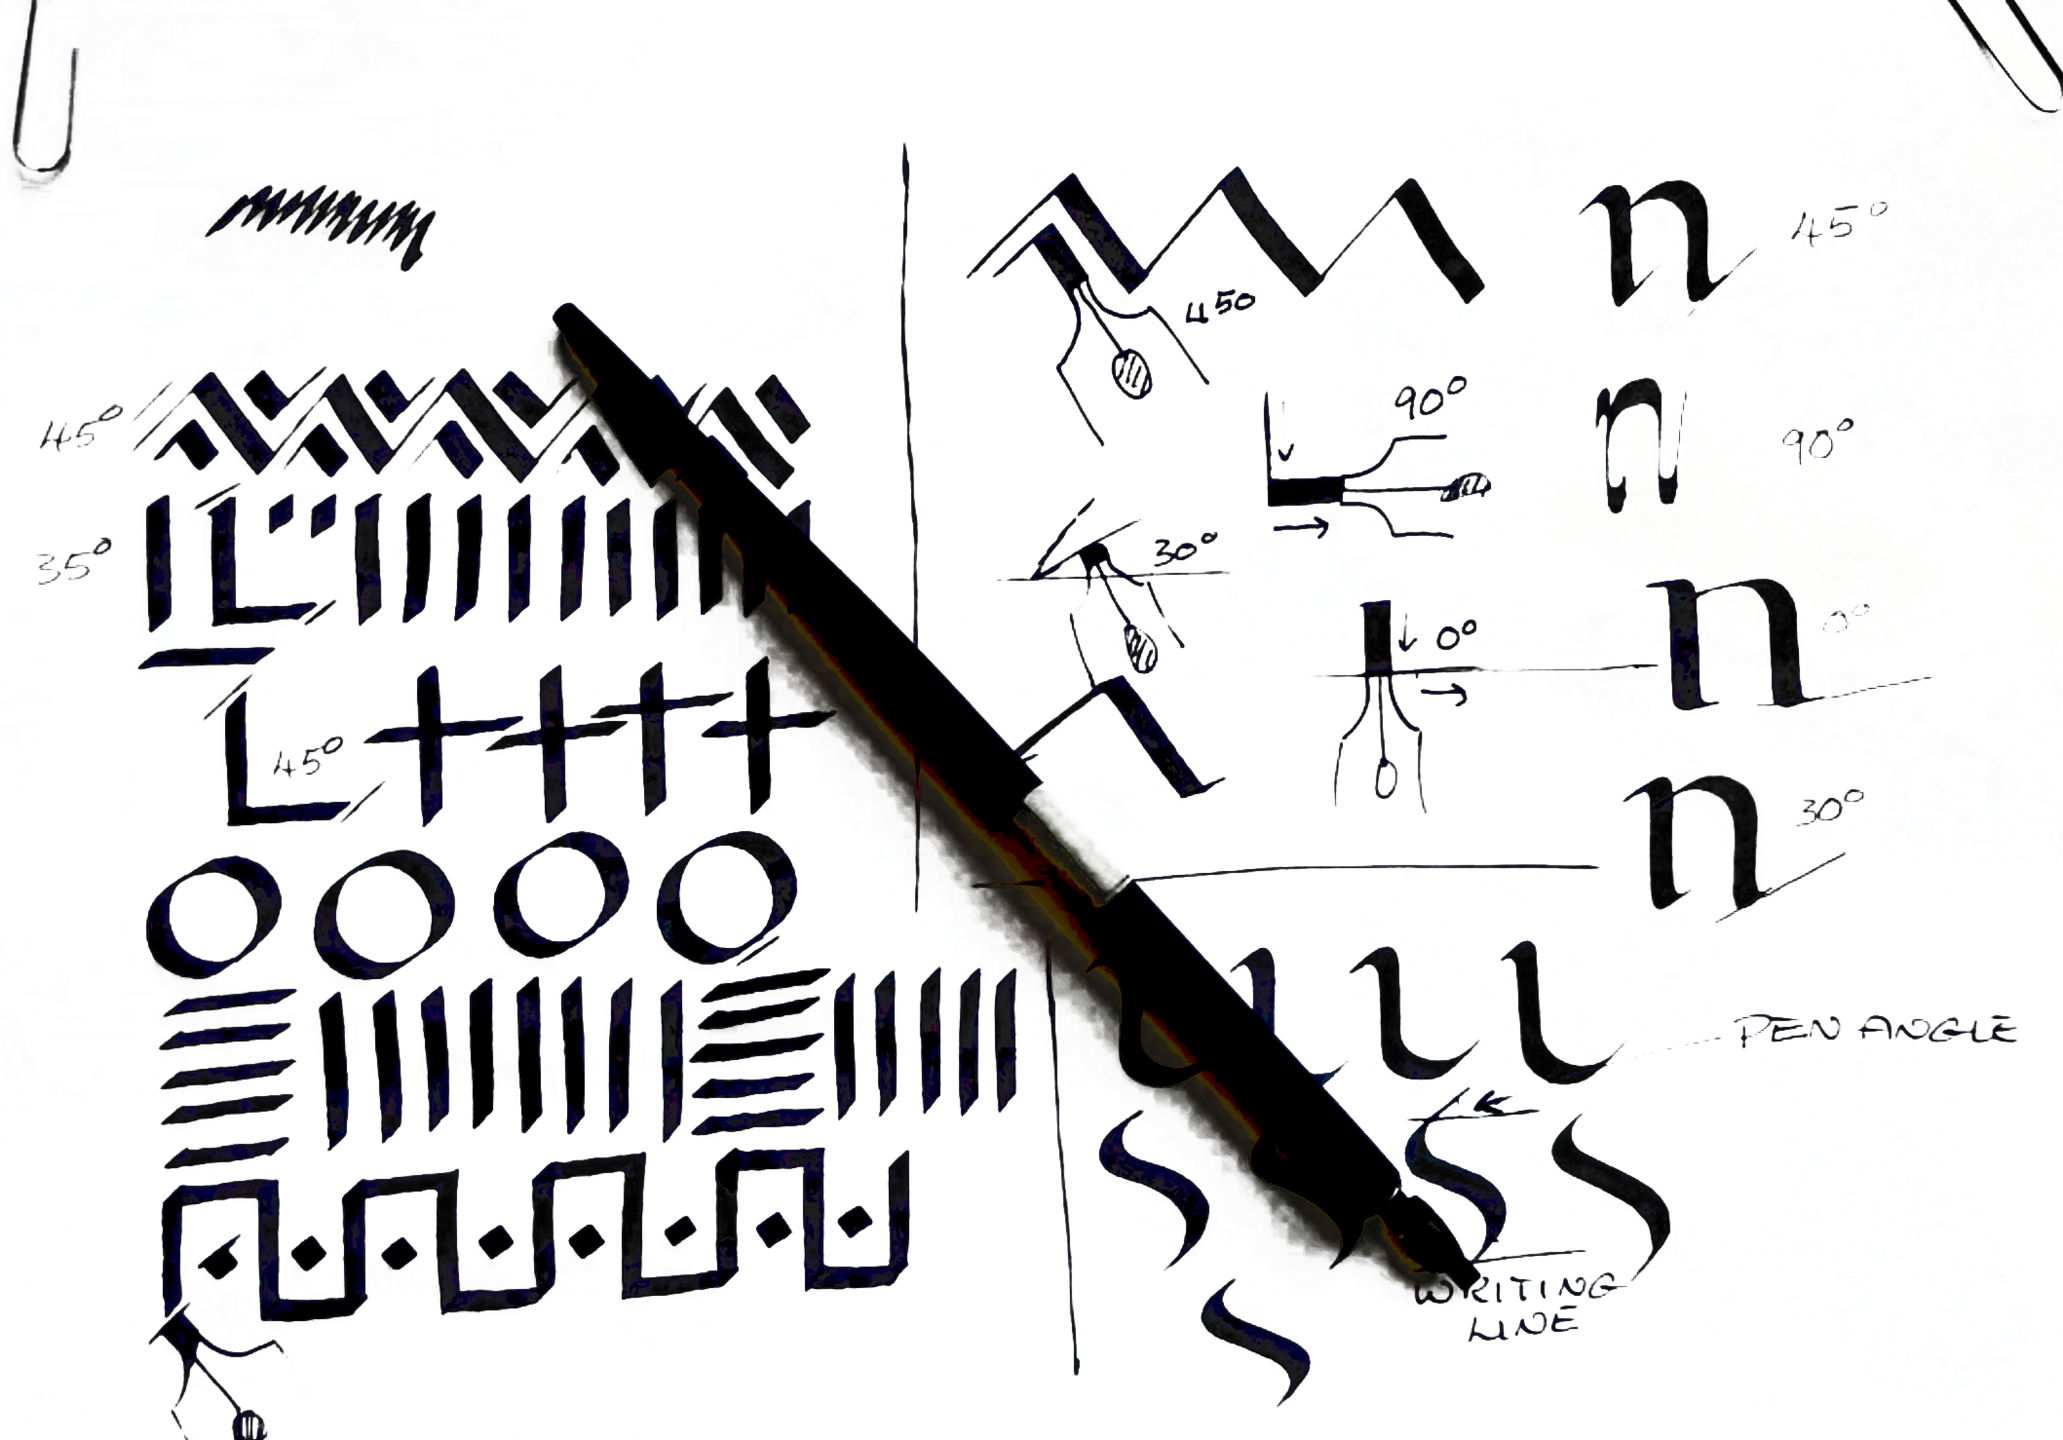 45°
35°
45°
n 45°
450
90°
n 90°
30°
0°
n 0°
n 30°
PEN ANGLE
WRITING
LINE